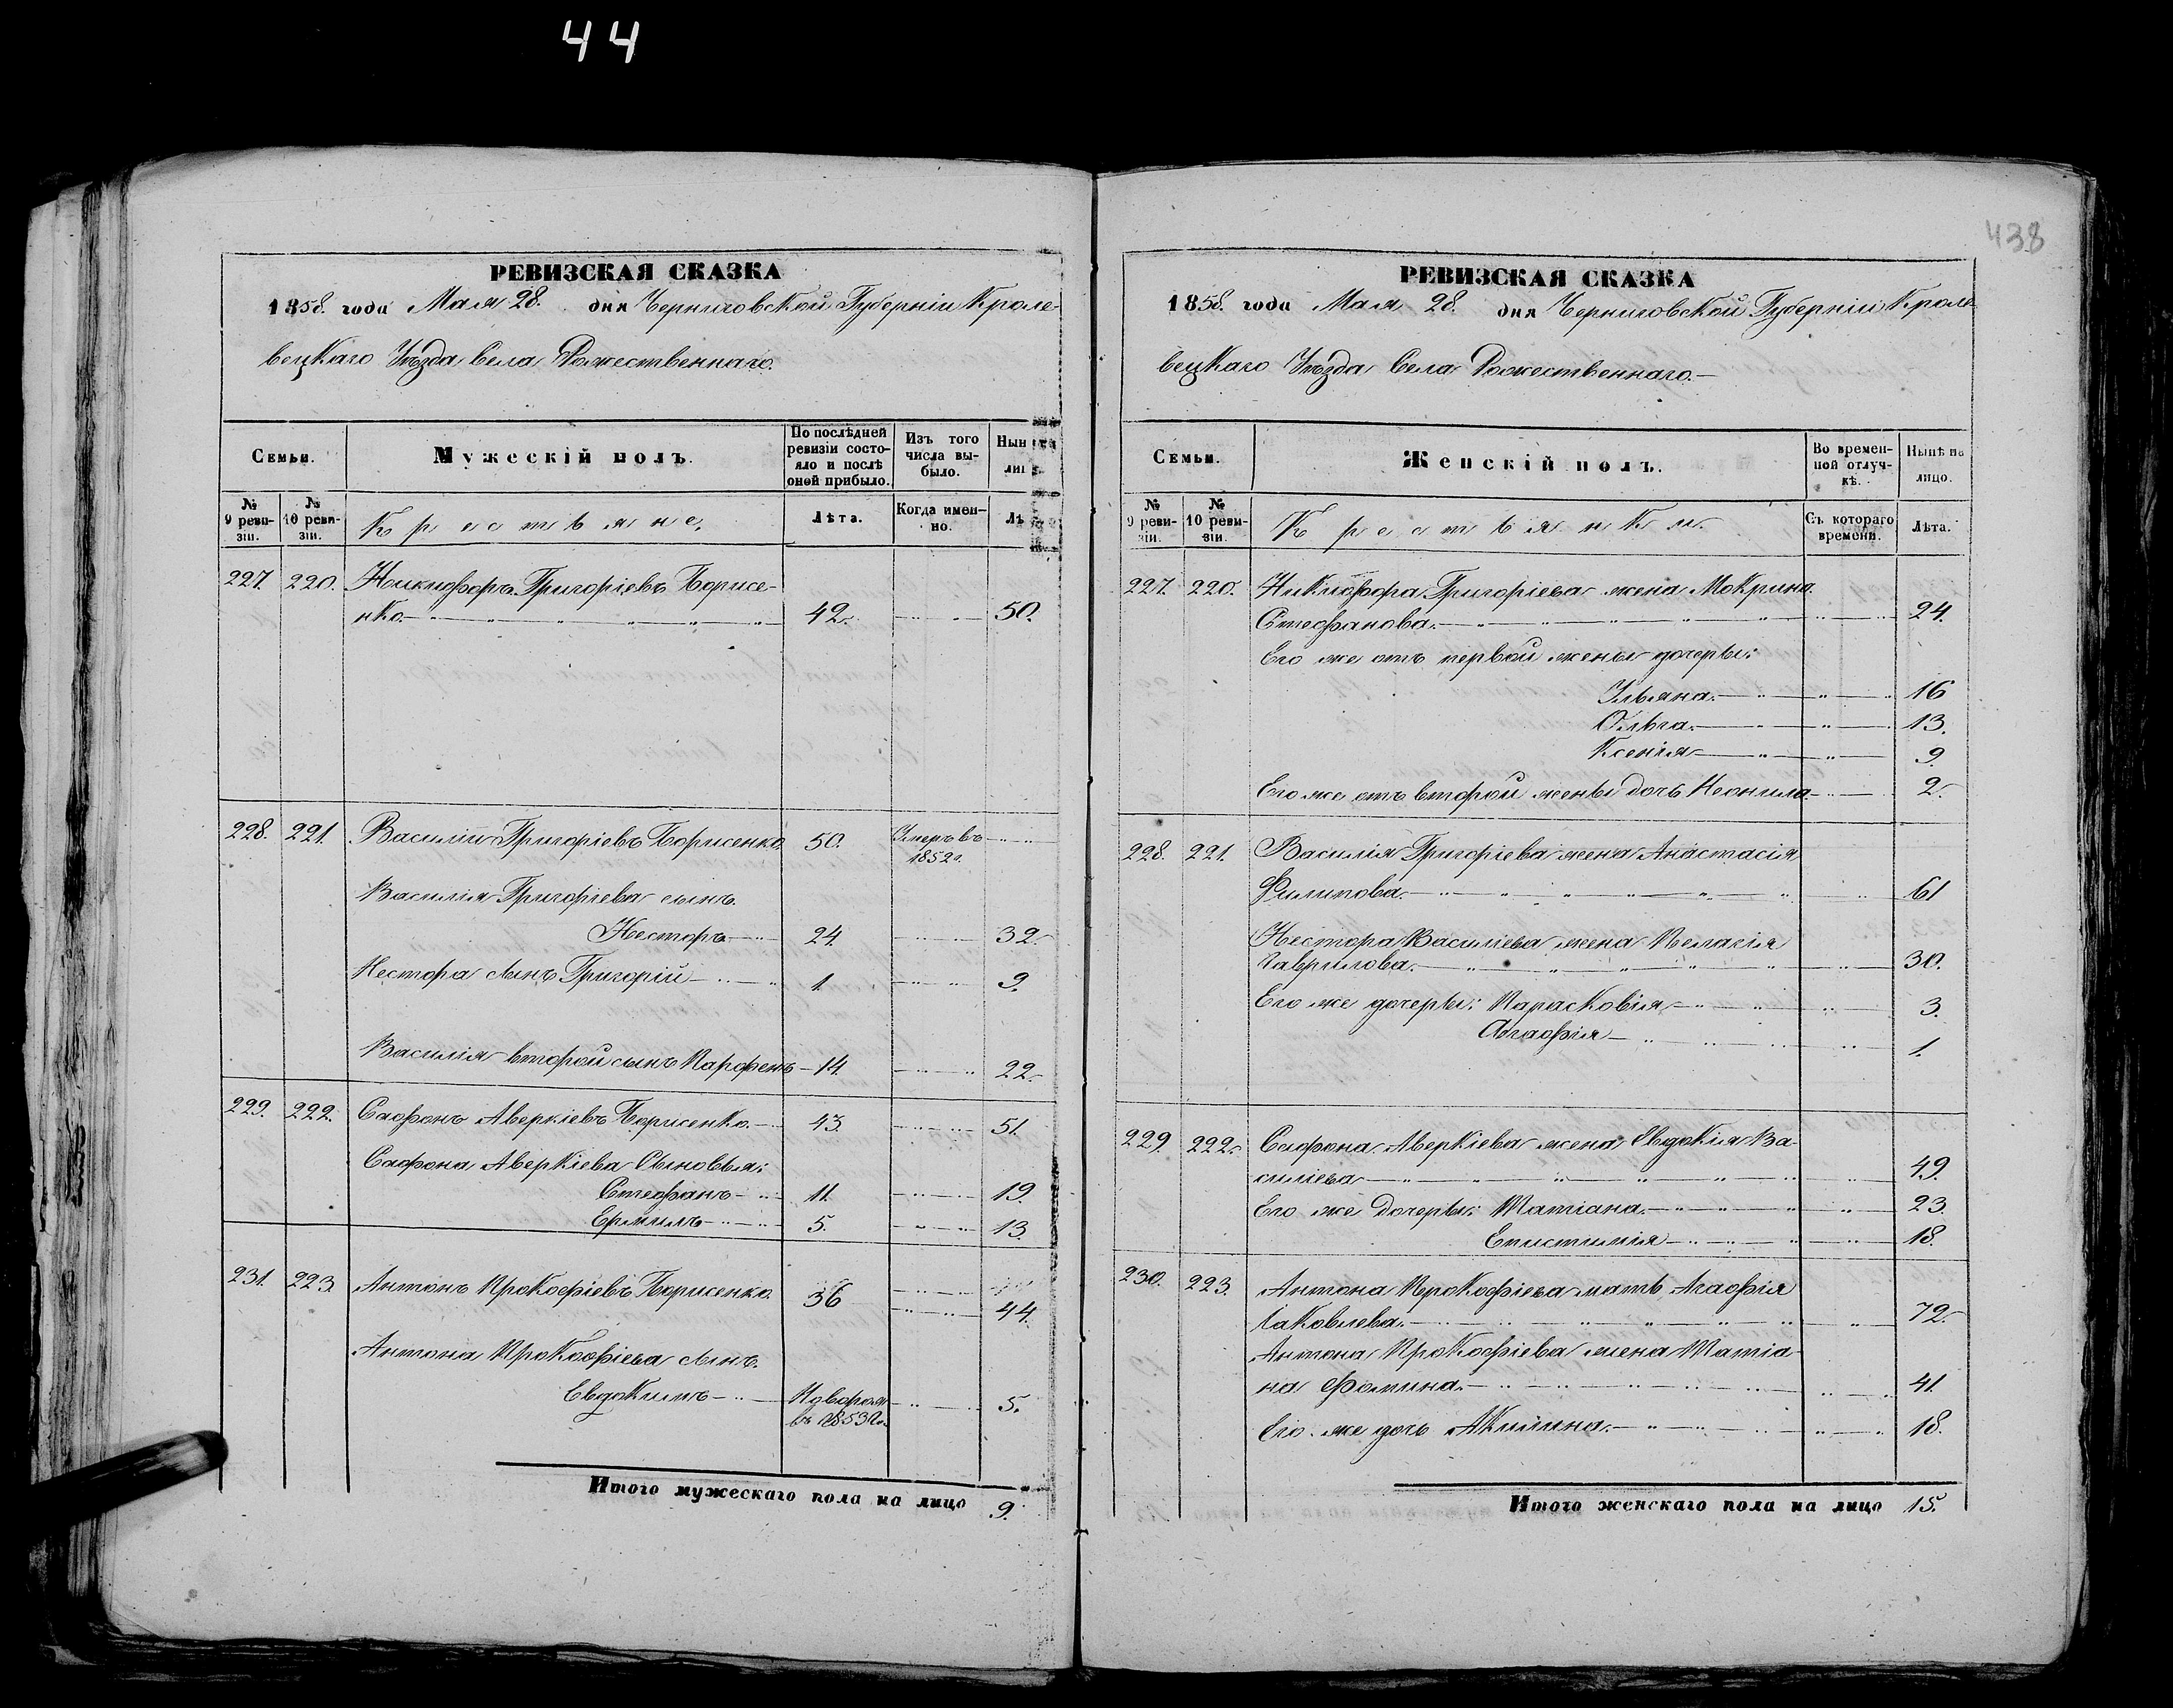 44
438
РЕВИЗСКАЯ СКАЗКА
1858. года Мая 28. дня Черниговской Губерніи Кроле-
вецкаго Уѣзда Села Рожественнаго.
Семьи.
Мужескій полъ.
По послѣдней ревизіи состо-яло и послѣ оной прибыло.
Изъ того числа вы-было.
Нынѣ на лицо
№ 9 реви-зіи.
№ 10 реви-зіи.
Крестьяне.
Лѣта.
Когда имен-но.
227. 220. Никифоръ Григоріевъ Борисе-
нко. 42. 50.
228. 221. Василій Григоріевъ Борисенко 50. Умеръ въ
1852 г.
Василія Григоріева сынъ.
Несторъ 24 32.
Нестора сынъ Григорій 1 9.
Василія второй сынъ Парфенъ 14 22.
229. 222. Сафонъ Аверкіевъ Борисенко. 43. 51.
Сафона Аверкіева Сыновья:
Стефанъ 11. 19
Ермилъ 5. 13.
231. 223. Антонъ Прокофіевъ Борисенко. 36 44.
Антона Прокофіева сынъ.
Евдокимъ 5.
въ 1853 г.
Итого мужескаго пола на лицо 9.
РЕВИЗСКАЯ СКАЗКА
1858. года Мая 28. дня Черниговской Губерніи Кроле-
вецкаго Уѣзда Села Рожественнаго.
Семьи.
Женскій полъ.
Во времен-ной отлуч-кѣ.
Нынѣ на лицо.
№ 9 реви-зіи.
№ 10 реви-зіи.
Крестьянки.
Съ котораго времени.
Лѣта.
227. 220. Никифора Григоріева жена Мокрина
Стефанова. 24.
Его же отъ первой жены дочеры:
Ульяна. 16
Ольга. 13.
Ксенія 9
Его же отъ второй жены дочь Неонила 2.
228. 221. Василія Григоріева жена Анастасія
Филипова. 61
Нестора Василіева жена Пелагія
Гаврилова. 30.
Его же дочеры: Парасковія 3.
Агафія 1.
229. 222. Сафона Аверкіева жена Евдокія Ва-
силіева 49.
Его же Дочеры: Татіана. 23.
Епистимія 18.
230. 223. Антона Прокофіева мать Агафія
Іаковлева. 72.
Антона Прокофіева жена Татіа-
на Фомина. 41.
Его же дочь Акилина. 18.
Итого женскаго пола на лицо 15.